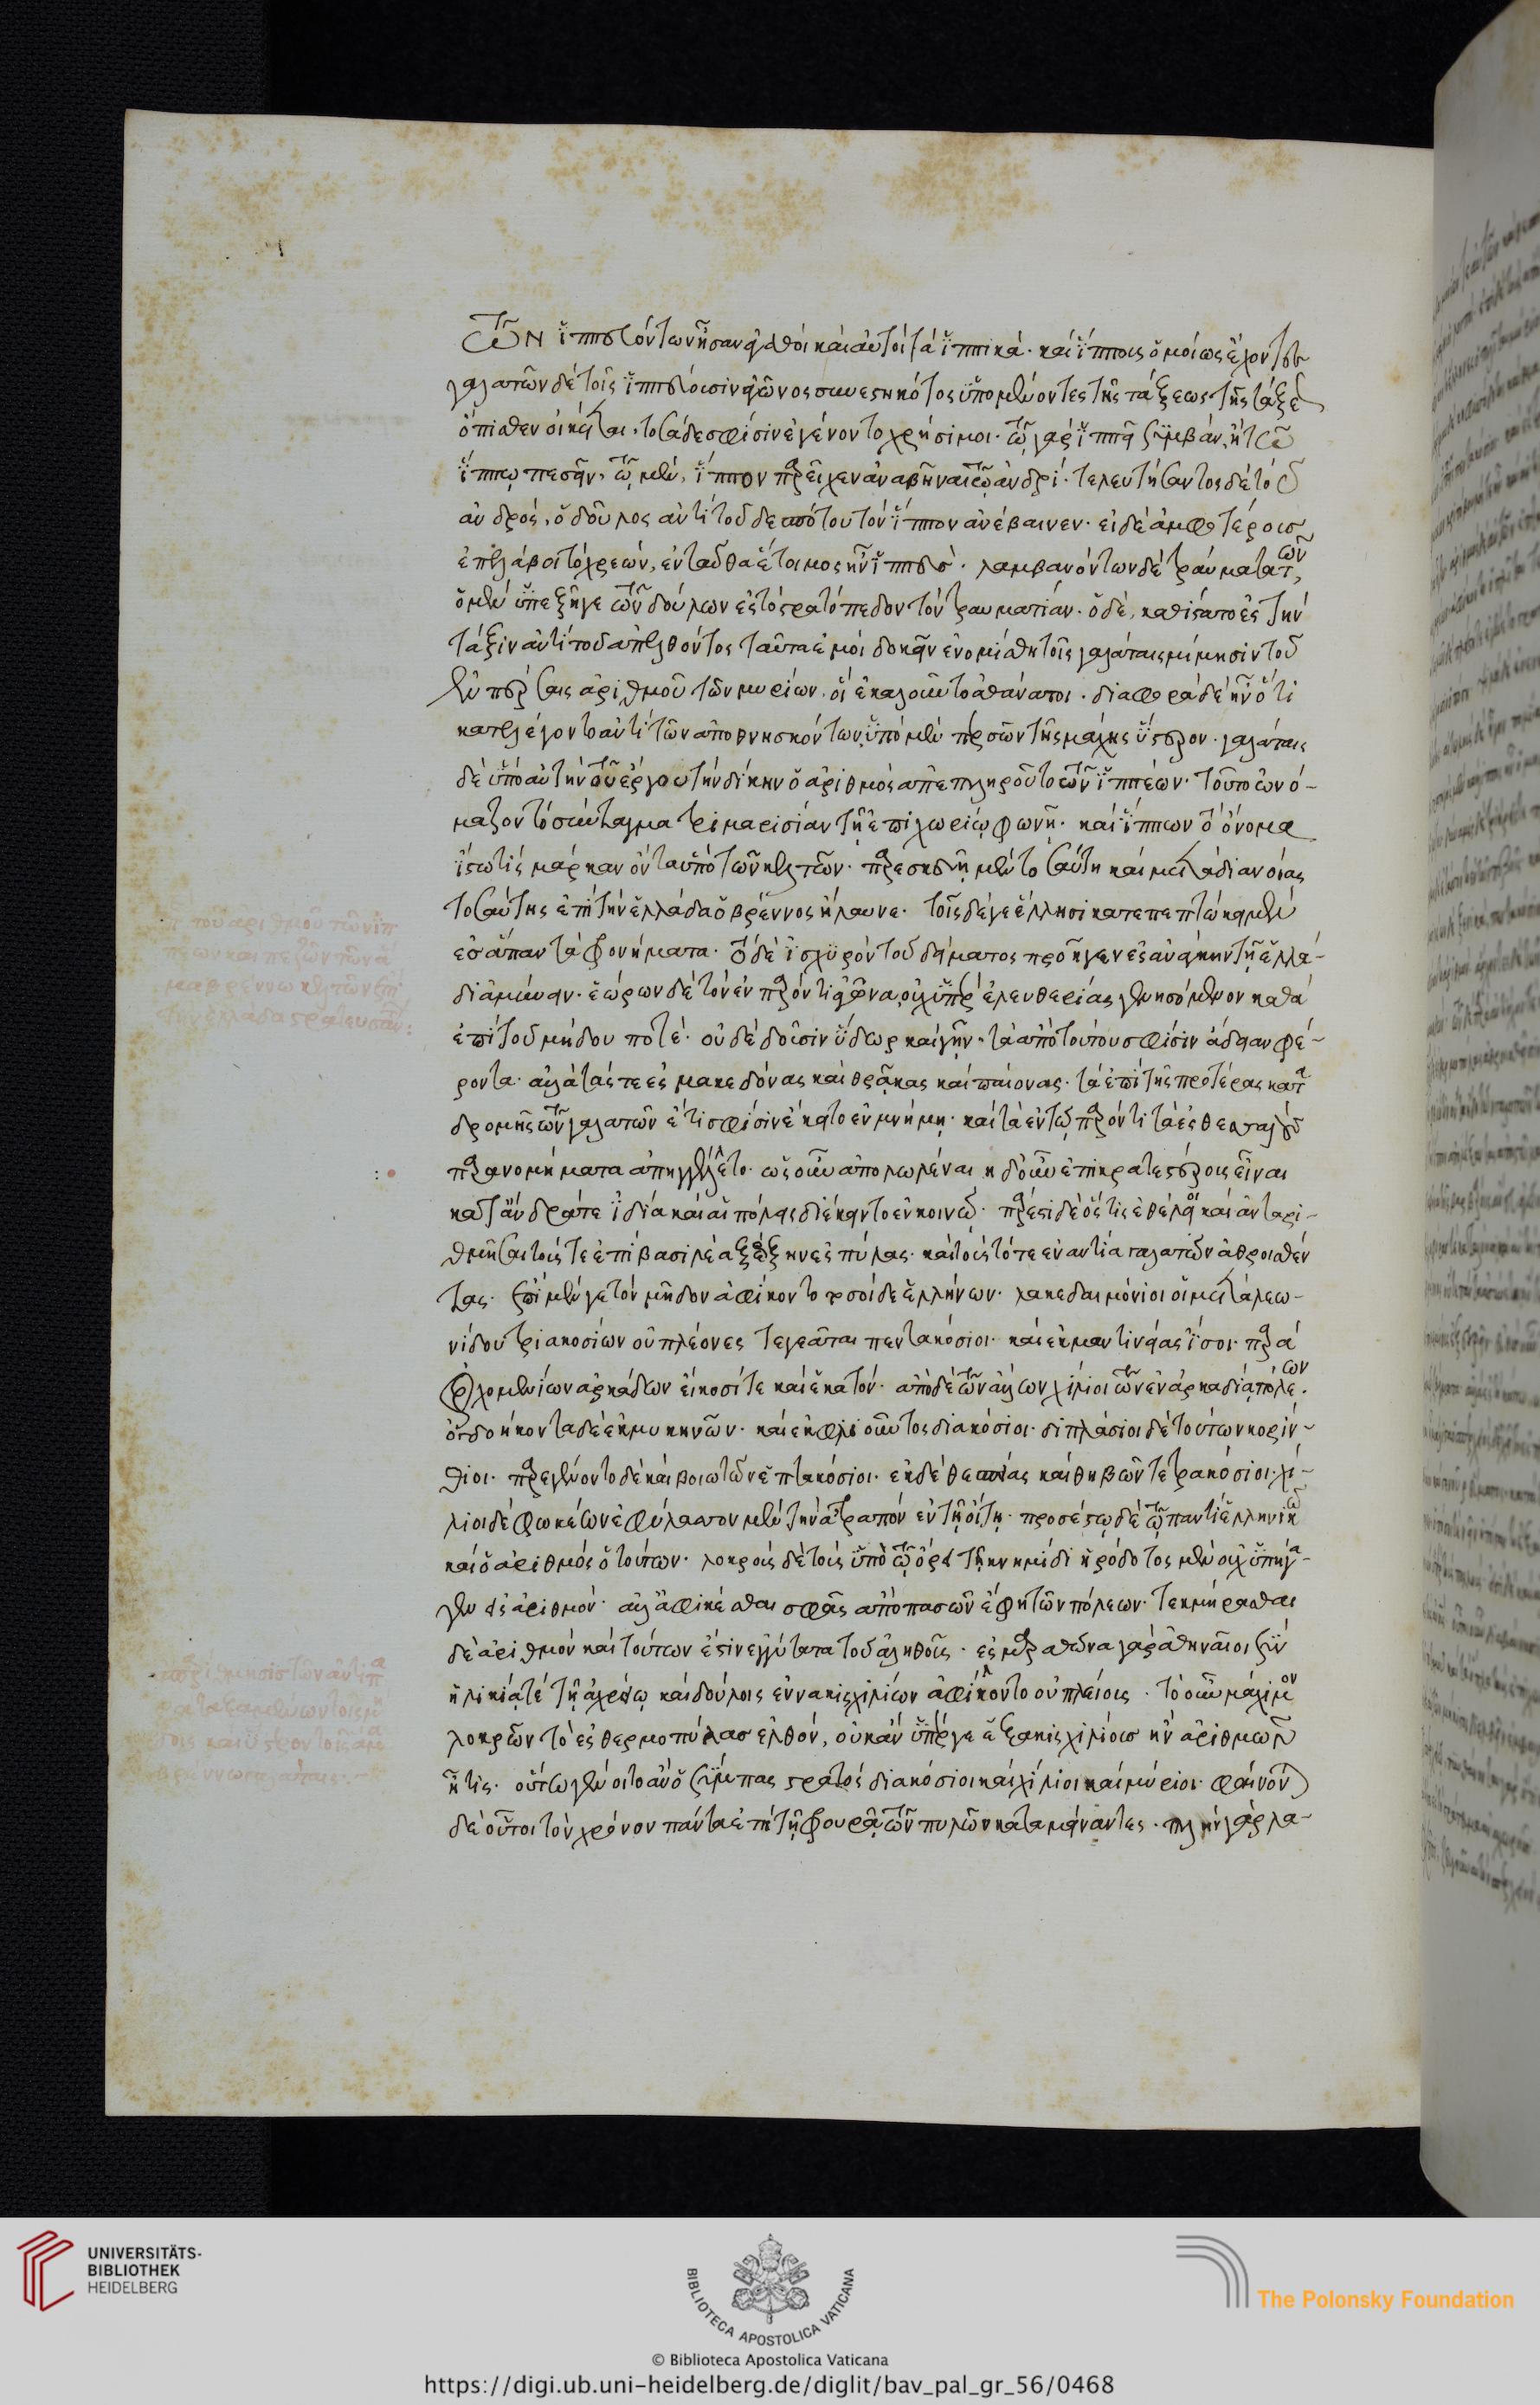 τῶν ἱππευόντων ἦσαν ἀγαθοὶ καὶ αὐτοὶ τὰ ἱππικά· καὶ ἵπποις ὁμοίως ἔχοντες
γαλατῶν δὲ τοῖς ἱππεύουσιν ἀγῶνος συνεστηκότος ὑπομένοντες τῆς τάξεως τῆς τάξε
ὄπισθεν οἱ οἰκέται, τοσάδε σφίσιν ἐγένοντο χρήσιμοι. τῷ γὰρ ἱππεῖ συμβὰν, ἢ τῷ
ἵππῳ πεσεῖν, τῷ μὲν, ἵππον παρεῖχεν ἀναβῆναι τῷ ἀνδρί. τελευτήσαντος δὲ τοῦ
ἀνδρός, ὁ δοῦλος ἀντὶ τοῦ δεσπότου τὸν ἵππον ἀνέβαινεν. εἰ δὲ ἀμφοτέρους
ἐπιλάβοι τὸ χρεών, ἐνταῦθα ἕτοιμος ἦν ἱππεύς. λαμβανόντων δὲ τραύματα τ,ῶν
ὁ μὲν ὑπεξῆγε τῶν δούλων ἐς τὸ στρατόπεδον τὸν τραυματίαν. ὁ δὲ, καθίστατο ἐς τὴν
τάξιν ἀντὶ τοῦ ἀπελθόντος ταῦτα ἐμοὶ δοκεῖν ἐνομίσθη τοῖς γαλάταις μίμησιν τοῦ
ἐν πέρσαις ἀριθμοῦ τῶν μυρίων, οἳ ἐκαλοῦντο ἀθάνατοι. διαφορὰ δὲ ἦν ὅτι
κατελέγοντο ἀντὶ τῶν ἀποθνησκόντων, ὑπὸ μὲν περσῶν τῆς μάχης ὕστερον. γαλάταις
δὲ ὑπὸ αὐτὴν τοῦ ἔργου τὴν δίκην ὁ ἀριθμὸς ἀπεπληροῦτο τῶν ἱππέων. τοῦτο ὠνό-
μαζον τὸ σύνταγμα τριμαρισίαν τῇ ἐπιχωρίῳ φωνῇ. καὶ ἵππων τὸ ὄνομα
ἴστω τὶς μάρκαν ὄντα ὑπὸ τῶν κελτῶν. παρασκευῇ μὲν τοσαύτῃ καὶ μετὰ διανοίας
τοσαύτης ἐπὶ τὴν ἑλλάδα ὁ βρέννος ἤλαυνε. τοῖς δέ γε ἕλλησι κατεπεπτώκει μὲν
ἐς ἅπαν τὰ φρονήματα. τὸ δὲ ἰσχυρὸν τοῦ δείματος προῆγεν ἐς ἀνάγκην τῇ ἑλλά-
δι ἀμύνειν. ἑώρων δὲ τὸν ἐν παρόντι ἀγῶνα, οὐχ ὑπὲρ ἐλευθερίας γενησόμενον καθὰ
ἐπὶ τοῦ μήδου ποτέ. οὐδὲ δοῦσιν ὕδωρ καὶ γῆν. τὰ ἀπὸ τούτου σφίσιν ἄδειαν φέ-
ροντα. ἀλλὰ τάς τε ἐς μακεδόνας καὶ θρᾷκας καὶ παίονας. τὰ ἐπὶ τῆς προτέρας κατα
δρομῆς τῶν γαλατῶν ἔτι σφίσιν ἔκειτο ἐν μνήμῃ. καὶ τὰ ἐν τῷ παρόντι τὰ ἐς θεσσαλοὺς
παρανομήματα ἀπηγγέλλετο. ὡς οὖν ἀπολωλέναι ἢ δ' οὖν ἐπικρατεστέρους εἶναι
κατ' ἄνδρα τε ἰδίᾳ καὶ αἱ πόλεις διέκειντο ἐν κοινῷ. πάρεστι δὲ ὅστις ἐθέλει καὶ ἀνταρι-
θμῆσαι τούς τε ἐπὶ βασιλέα ξέρξην ἐς πύλας. καὶ τοὺς τότε ἐναντία γαλατῶν ἀθροισθέν
τας. ἐπὶ μέν γε τὸν μῆδον ἀφίκοντο τοσοίδε ἑλλήνων. λακεδαιμόνιοι οἱ μετὰ λεω-
νίδου τριακοσίων οὐ πλέονες τεγεᾶται πεντακόσιοι. καὶ ἐκ μαντινείας ἴσοι. παρὰ
ὀρχομενίων ἀρκάδων εἴκοσί τε καὶ ἑκατόν. ἀπὸ δὲ τῶν ἄλλων χίλιοι τῶν ἐν ἀρκαδίᾳ πόλεων.
ὀγδοήκοντα δὲ ἐκ μυκηνῶν. καὶ ἐκ φλιοῦντος διακόσιοι. διπλάσιοι δὲ τούτων κορίν-
θιοι. παρεγένοντο δὲ καὶ βοιωτῶν ἑπτακόσιοι. ἐκ δὲ θεσπίας καὶ θηβῶν τετρακόσιοι. χί-
λιοι δὲ φωκέων ἐφύλασσον μὲν τὴν ἀτραπὸν ἐν τῇ οἴτῃ. προσέστω δὲ τῷ παντὶ ἑλληνικῷ
καὶ ὁ ἀριθμὸς ὁ τούτων. λοκροὺς δὲ τοὺς ὑπὸ τῷ ὄρει τῇ κνημίδι ἡρόδοτος μὲν οὐχ ὑπήγα-
γεν ἐς ἀριθμόν. ἀλλ' ἀφικέσθαι σφᾶς ἀπὸ πασῶν ἔφη τῶν πόλεων. τεκμήρασθαι
δὲ ἀριθμὸν καὶ τούτων ἔστιν ἐγγύτατα τοῦ ἀληθοῦς. ἐς μαραθῶνα γὰρ ἀθηναῖοι σὺν
ἡλικίᾳ τέ τῇ ἀχρείῳ καὶ δούλοις ἐννακισχιλίων ἀφίκοντο οὐ πλείους. τὸ οὖν μάχιμον
λοκρῶν τὸ ἐς θερμοπύλας ἐλθὸν, οὐκ ἂν ὑπέρ γε ἑξακισχιλίους ἦν ἀριθμῶν
ἥτις. οὕτω γένοιτο ἂν ὁ σύμπας στρατὸς διακόσιοι καὶ χίλιοι καὶ μύριοι. φαίνον
δὲ οὗτοι τὸν χρόνον πάντα ἐπὶ τῇ φρουρᾷ τῶν πυλῶν καταμείναντες. πλὴν γὰρ λα-
UNIVERSITÄTS-
BIBLIOTHEK
HEIDELBERG
BIBLIOTECA APOSTOLICA VATICANA
© Biblioteca Apostolica Vaticana
The Polonsky Foundation
https://digi.ub.uni-heidelberg.de/diglit/bav_pal_gr_56/0468